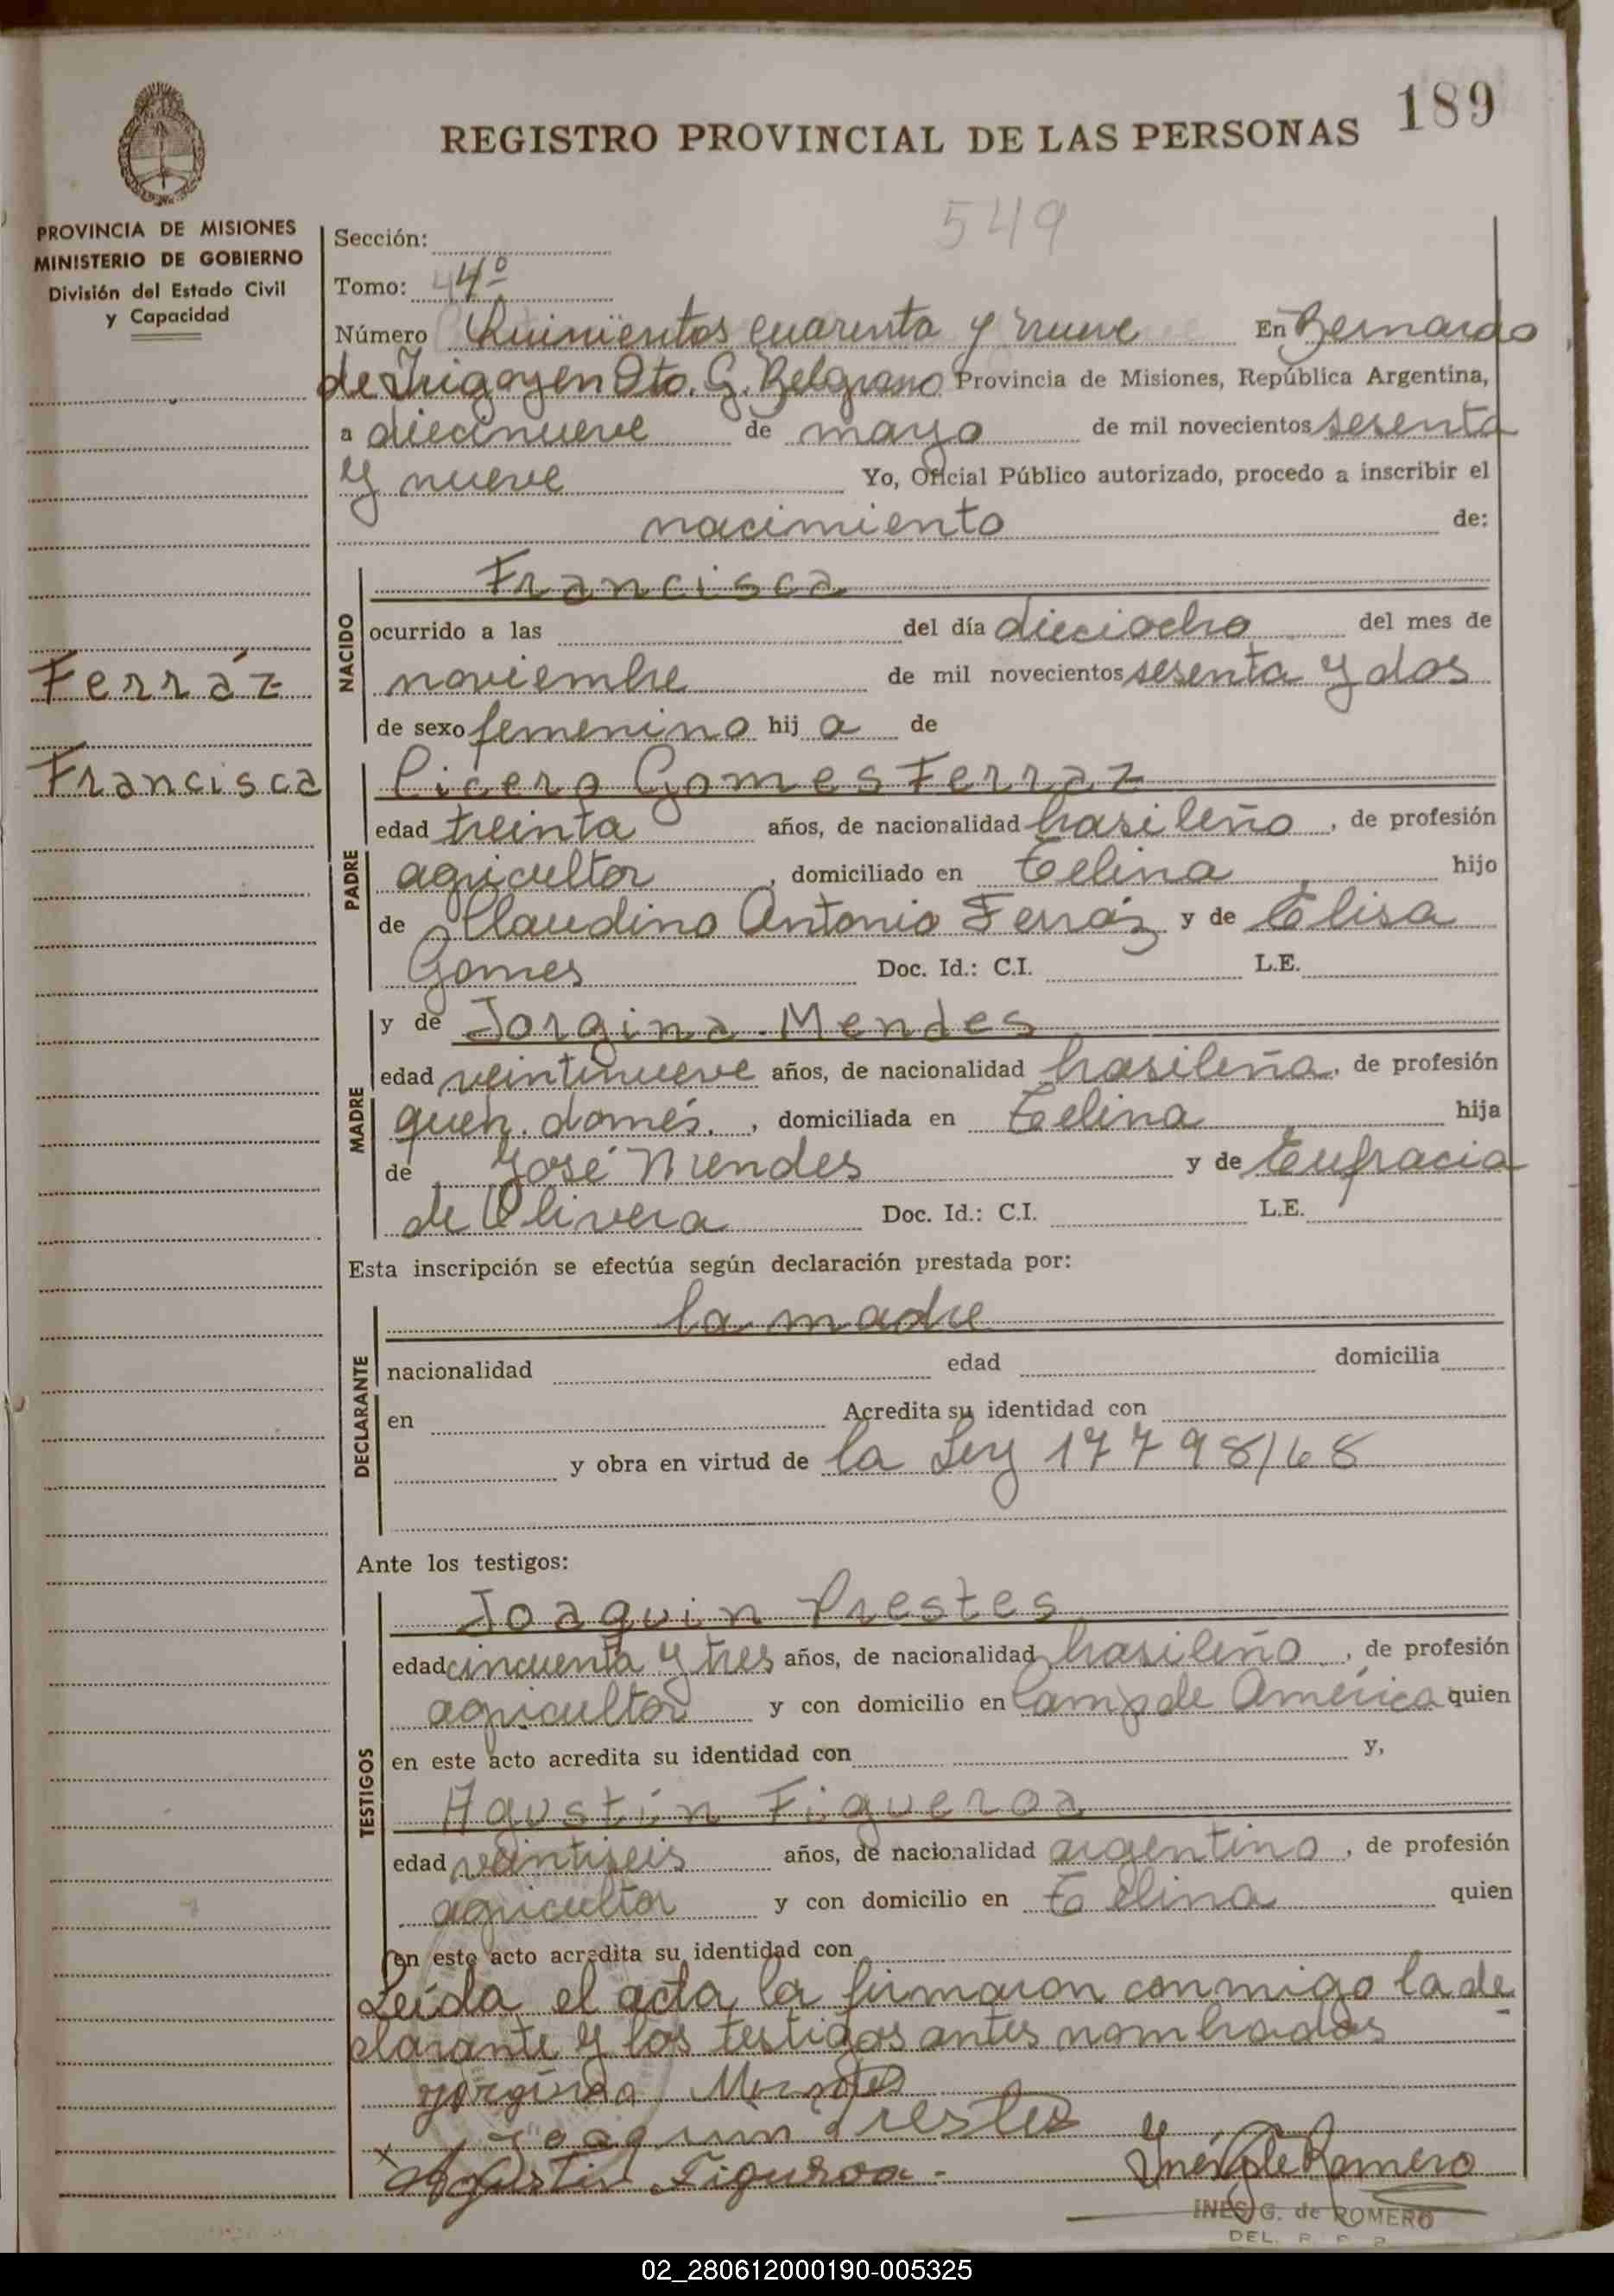 189
REGISTRO PROVINCIAL DE LAS PERSONAS
PROVINCIA DE MISIONES
MINISTERIO DE GOBIERNO
División del Estado Civil
y Capacidad
549
Sección:
Tomo: 4º
Número Quinientos cuarenta y nueve En Bernardo
de Irigoyen Dto. G. Belgrano Provincia de Misiones, República Argentina,
a diecinueve de mayo de mil novecientos sesenta
y nueve Yo, Oficial Público autorizado, procedo a inscribir el
nacimiento de:
Ferráz
Francisca
NACIDO
Francisca
ocurrido a las del día dieciocho del mes de
noviembre de mil novecientos sesenta y dos
de sexo femenino hij a de
PADRE
Cicero Gomes Ferraz
edad treinta años, de nacionalidad brasileño, de profesión
agricultor, domiciliado en Celina hijo
de Claudino Antonio Ferráz y de Elisa
Gomes Doc. Id.: C.I. L.E.
MADRE
y de Jorgina Mendes
edad veintinueve años, de nacionalidad brasileña, de profesión
queh. domés., domiciliada en Celina hija
de José Mendes y de Eufracia
de Olivera Doc. Id.: C.I. L.E.
Esta inscripción se efectúa según declaración prestada por:
DECLARANTE
la madre
nacionalidad edad domicilia
en Acredita su identidad con
y obra en virtud de la Ley 17798/68
Ante los testigos:
TESTIGOS
Joaquin Prestes
edad cincuenta y tres años, de nacionalidad brasileño, de profesión
agricultor y con domicilio en Camp de América quien
en este acto acredita su identidad con y,
Agustín Figueroa
edad veintiseis años, de nacionalidad argentino, de profesión
agricultor y con domicilio en Celina quien
en este acto acredita su identidad con
Leída el acta la firmaron conmigo la de
clarante y los testigos antes nombrados
Joaquim Prestes
Agustin Figueroa
Inés G de Romero
INES G. de ROMERO
DEL. R P P
02_280612000190-005325